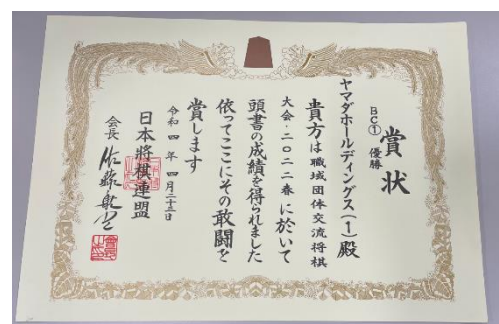 賞状
BC① 優勝
ヤマダホールディングス(1)殿
貴方は職域団体交流将棋
大会・二〇二二春に於いて
頭書の成績を得られました
依ってここにその敢闘を
賞します
令和四年四月二十三日
日本将棋連盟
会長 佐藤康光